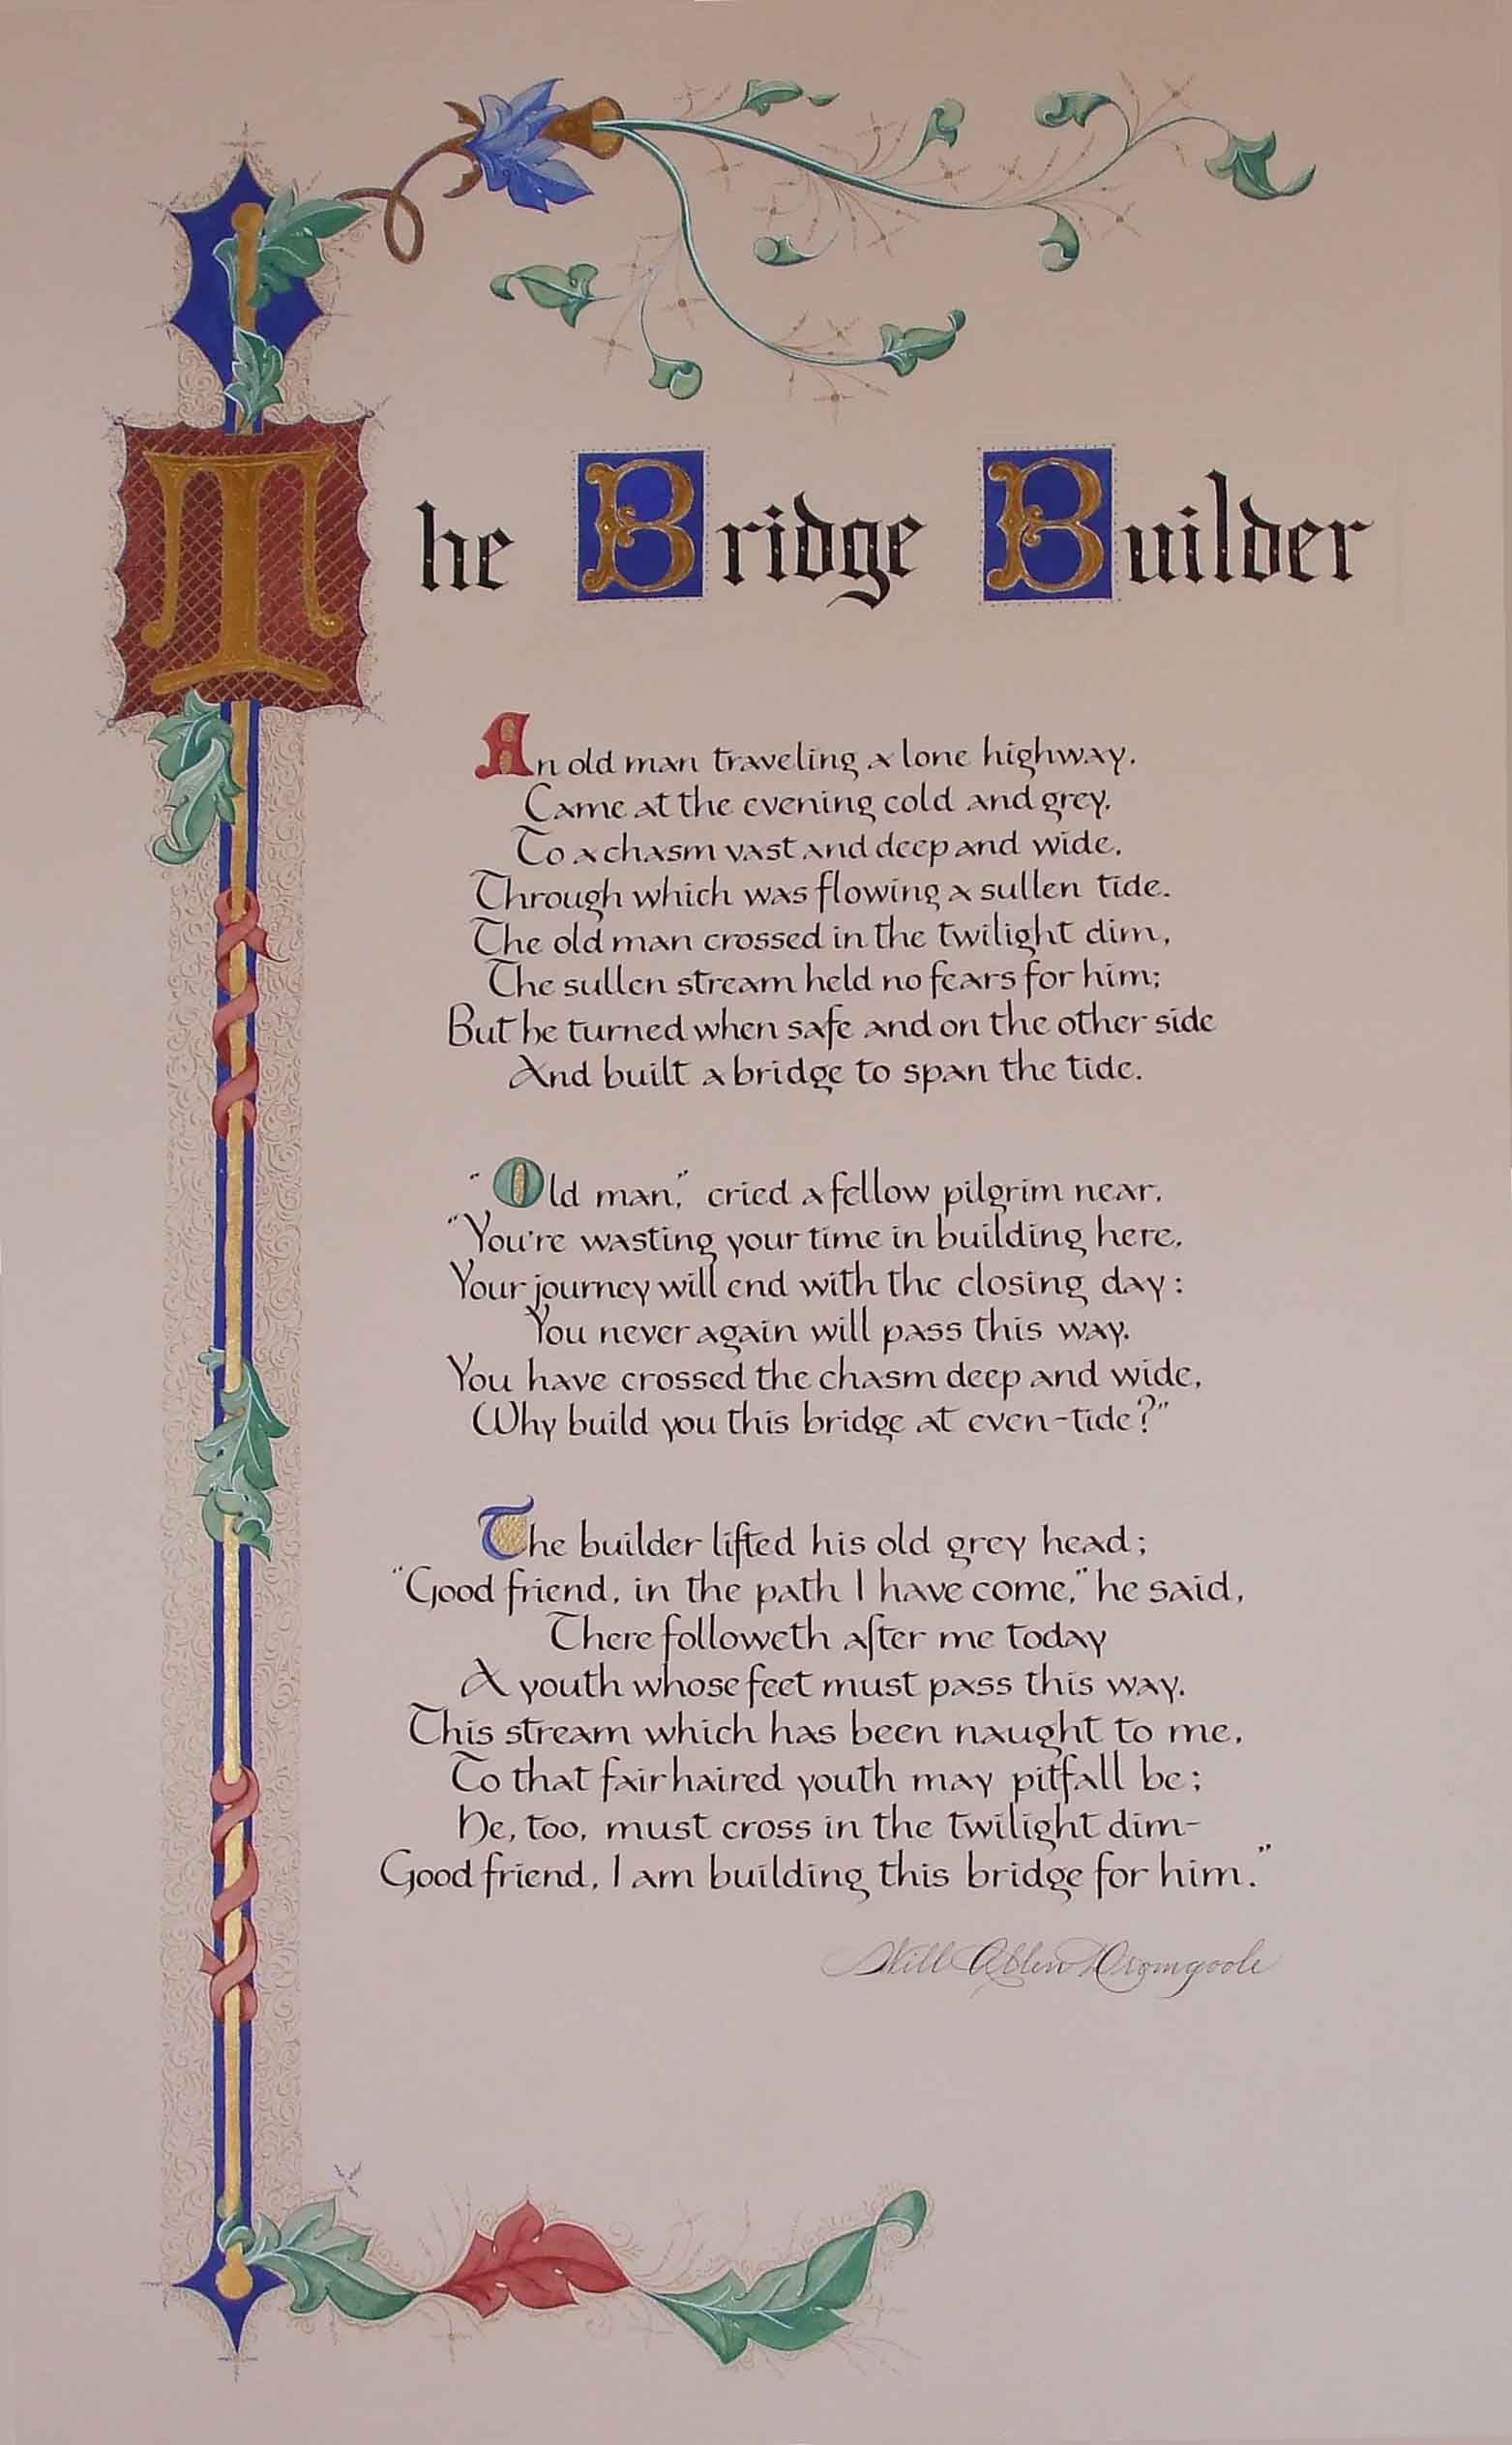 The Bridge Builder
An old man traveling a lone highway,
Came at the evening cold and grey,
To a chasm vast and deep and wide,
Through which was flowing a sullen tide.
The old man crossed in the twilight dim,
The sullen stream held no fears for him;
But he turned when safe and on the other side
And built a bridge to span the tide.
"Old man," cried a fellow pilgrim near,
"You're wasting your time in building here,
Your journey will end with the closing day:
You never again will pass this way.
You have crossed the chasm deep and wide,
Why build you this bridge at even-tide?"
The builder lifted his old grey head;
"Good friend, in the path I have come," he said,
There followeth after me today
A youth whose feet must pass this way.
This stream which has been naught to me,
To that fair haired youth may pitfall be;
He, too, must cross in the twilight dim-
Good friend, I am building this bridge for him."
Will Allen Dromgoole